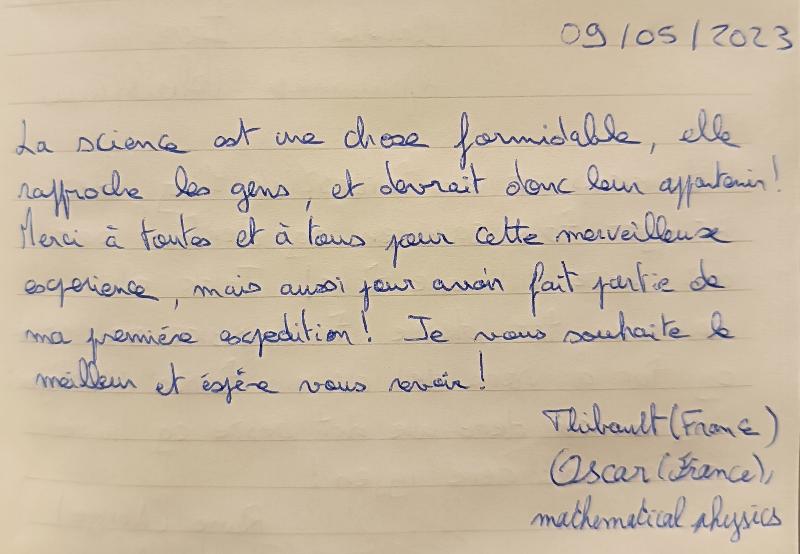 09/05/2023
La science est une chose formidable, elle
rapproche les gens, et devrait donc leur appartenir!
Merci à toutes et à tous pour cette merveilleuse
experience, mais aussi pour avoir fait partie de
ma première expedition! Je vous souhaite le
meilleur et éspère vous revoir!
Thibault (France)
(Oscar (France),
mathematical physics